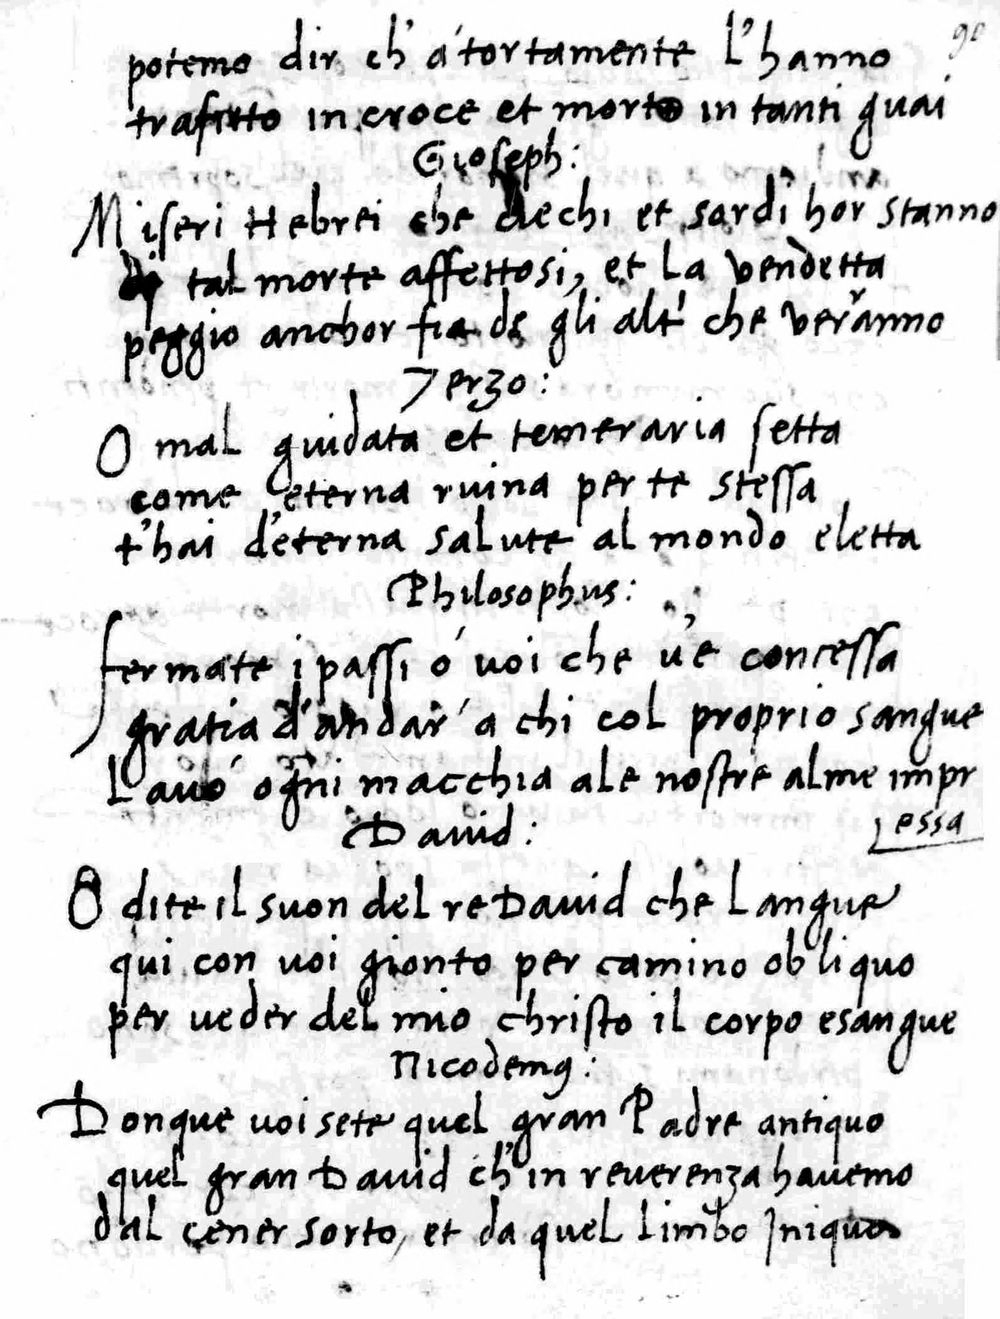 90
potemo dir ch' a' tortamente l'hanno
trafitto in croce et morto in tanti guai
Gioseph:
Miseri Hebrei che ciechi et sordi hor stanno
di tal morte affettosi, et la vendetta
peggio anchor fia de gli alt' che veranno
Terzo:
O mal guidata et temeraria setta
come eterna ruina per te stessa
t'hai d'eterna salute al mondo eletta
Philosophus:
fermate i passi ó voi che v'e concessa
gratia d'andar 'a chi col proprio sangue
Lavó ogni macchia ale nostre alme impr
essa
David:
O dite il suon del re David che langue
qui con voi gionto per camino obliquo
per veder del mio christo il corpo esangue
Nicodemꝯ:
Donque voi sete quel gran Padre antiquo
quel gran David ch'in reverenza havemo
dal cener sorto, et da quel limbo Iniquo